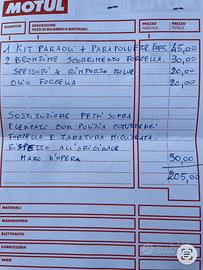 MOTUL
QUANTITÀ
DESCRIZIONE
PEZZI DI RICAMBIO E MATERIALI
PREZZO
PARZIALE
PREZZO
TOTALE
1 KIT PARAOLI + PARAPOLVERE 45,00
2 BRONZINE SCORRIMENTO FORCELLA. 30,00
SPESSORI X RINFORZO MOLLE 20,00
OLIO FORCELLA 20,00
SOSTITUZIONE PEZZI SOPRA
ELENCATI CON PULIZIA COMPONENTI
FORCELLA E TARATURA MIGLIORATA
RISPETTO ALL'ORIGINALE
MANO D'OPERA 90,00
205,00
MATERIALI
MANODOPERA
ELETTRAUTO
CARROZZERIA
VARIE